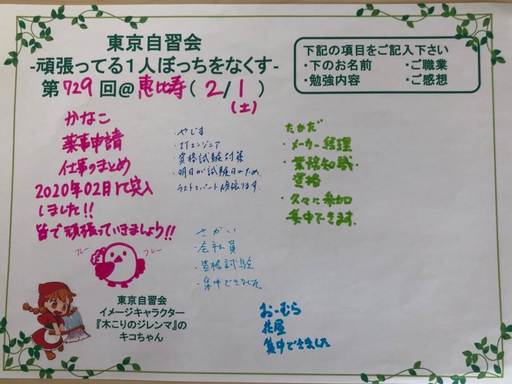 東京自習会
-頑張ってる1人ぼっちをなくす-
第729回@恵比寿(2/1)
(土)
下記の項目をご記入下さい
・下のお名前 ・ご職業
・勉強内容 ・ご感想
かなこ
薬事申請
仕事のまとめ
2020年02月に突入
しました!!
皆で頑張っていきましょう!!
フレー
フレー
・やじま
・ITエンジニア
・資格試験対策
・明日が試験日のため、
ラストスパート頑張ります。
たかだ
・メーカー経理
・業務知識
資格
・久々に参加
集中できます。
さかい
・会社員
・資格試験
・集中できました
おーむら
花屋
集中できました
東京自習会
イメージキャラクター
『木こりのジレンマ』の
キコちゃん